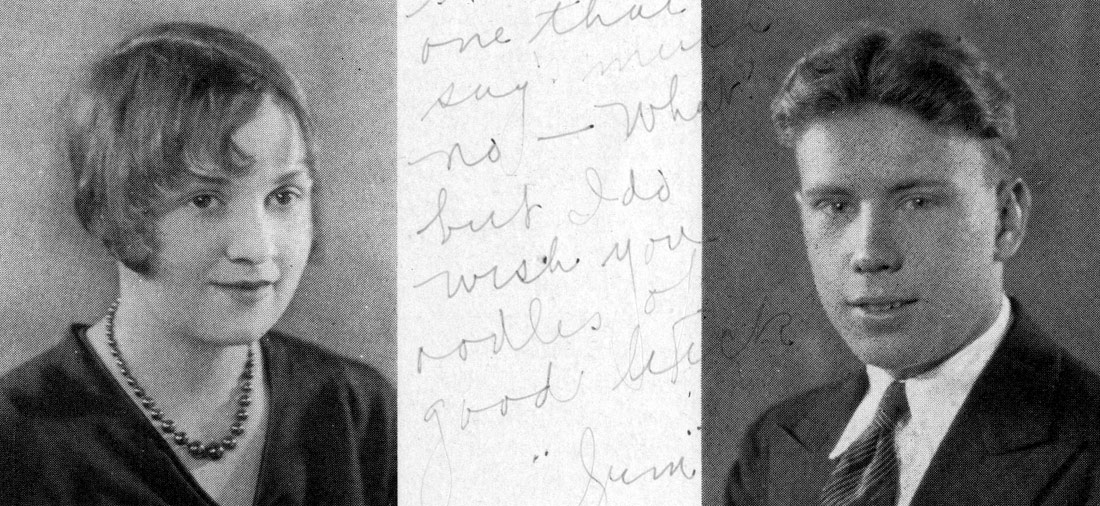 one that
say much
no — What?
but I do
wish you
oodles of
good luck
"Jim"